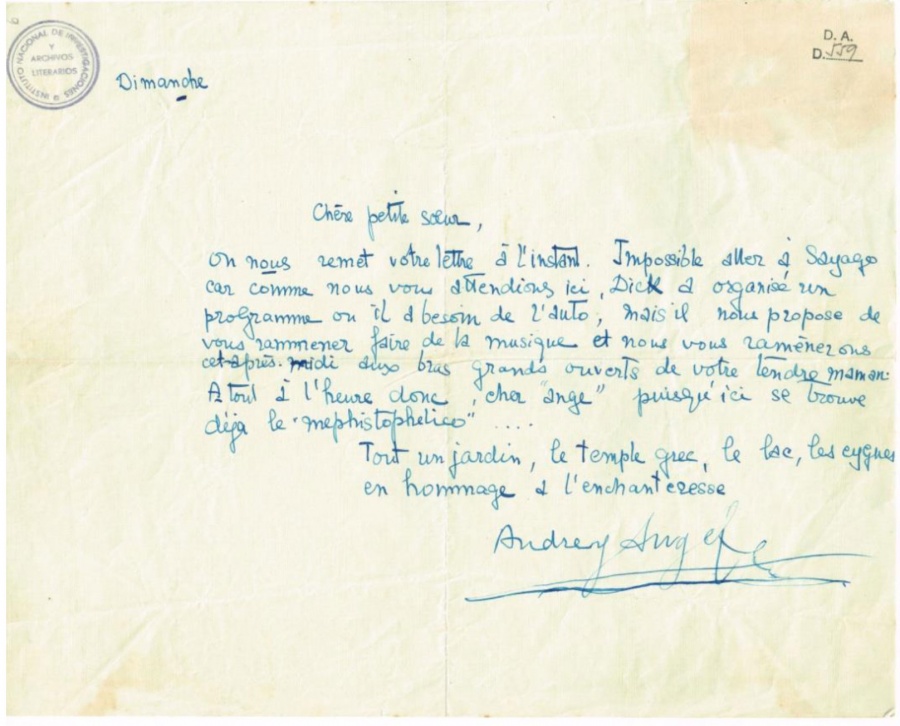 INSTITUTO NACIONAL DE INVESTIGACIONES
Y
ARCHIVOS
LITERARIOS
D. A.
D. 559
Dimanche
Chère petite sœur,
On nous remet votre lettre à l'instant. Impossible aller à Sayago
car comme nous vous attendions ici, Dick a organisé un
programme ou il a besoin de l'auto, mais il nous propose de
vous rammener faire de la musique et nous vous ramènerons
cet après-midi aux bras grands ouverts de votre tendre maman.
A tout à l'heure donc, cher "ange" puisqu'ici se trouve
déja le "mephistophelico" ....
Tout un jardin, le temple grec, le lac, les cygnes
en hommage à l'enchanteresse
Audrey